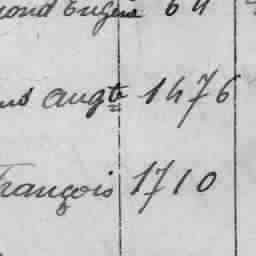 mond Eugène 64
ns Augte 1476
François 1710